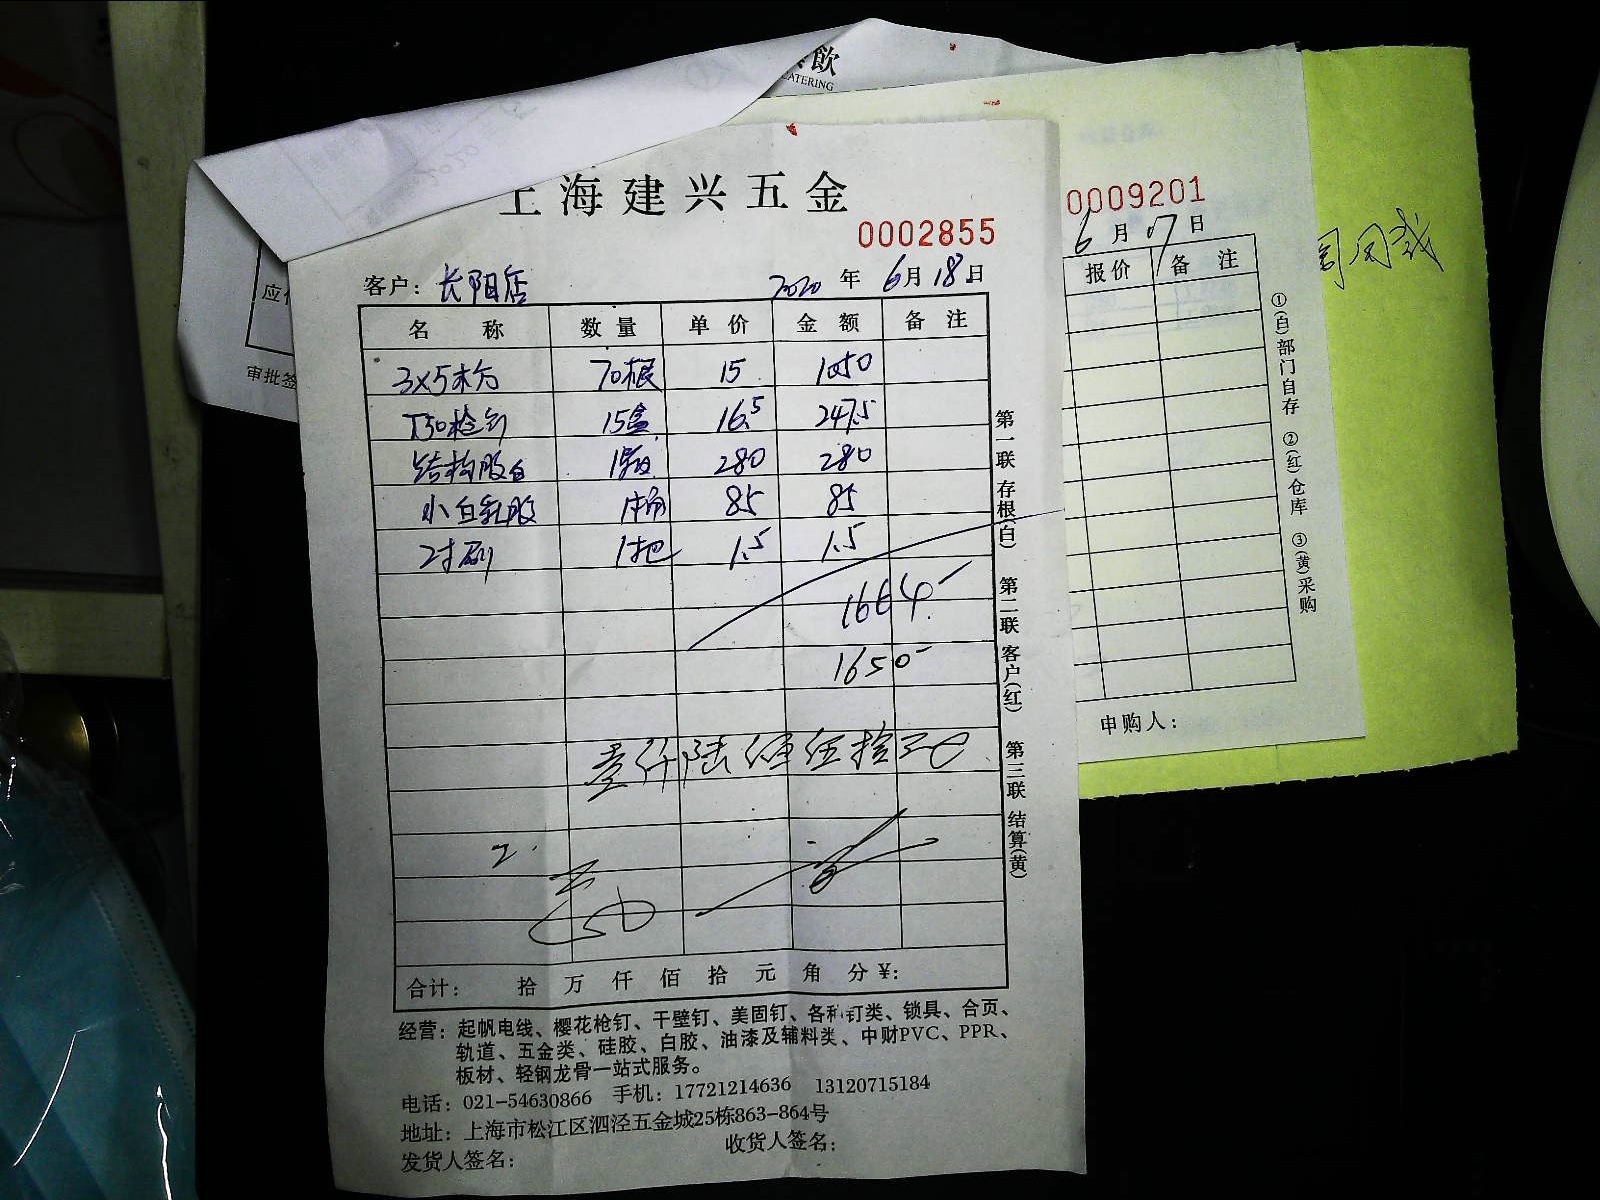 飲
CATERING
上海建兴五金
0002855
客户：长阳店 2020年6月18日
名称 数量 单价 金额 备注
3×5木方 70根 15 1050
T50枪钉 15盒 16.5 247.5
结构胶白 1箱 280 280
小白乳胶 1桶 85 85
2寸刷 1把 1.5 1.5
1664.-
1650-
壹仟陆佰伍拾元
合计： 拾 万 仟 佰 拾 元 角 分 ¥：
第一联 存根(白) 第二联 客户(红) 第三联 结算(黄)
经营：起帆电线、樱花枪钉、干壁钉、美固钉、各种钉类、锁具、合页、
轨道、五金类、硅胶、白胶、油漆及辅料类、中财PVC、PPR、
板材、轻钢龙骨一站式服务。
电话：021-54630866 手机：17721214636 13120715184
地址：上海市松江区泗泾五金城25栋863-864号
发货人签名： 收货人签名：
审批签
0009201
6月17日
报价 备注
①(白)部门自存 ②(红)仓库 ③(黄)采购
申购人：